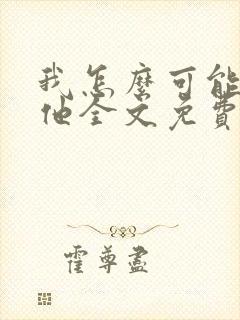 我怎麽可能
他全文免費
霍尊盡